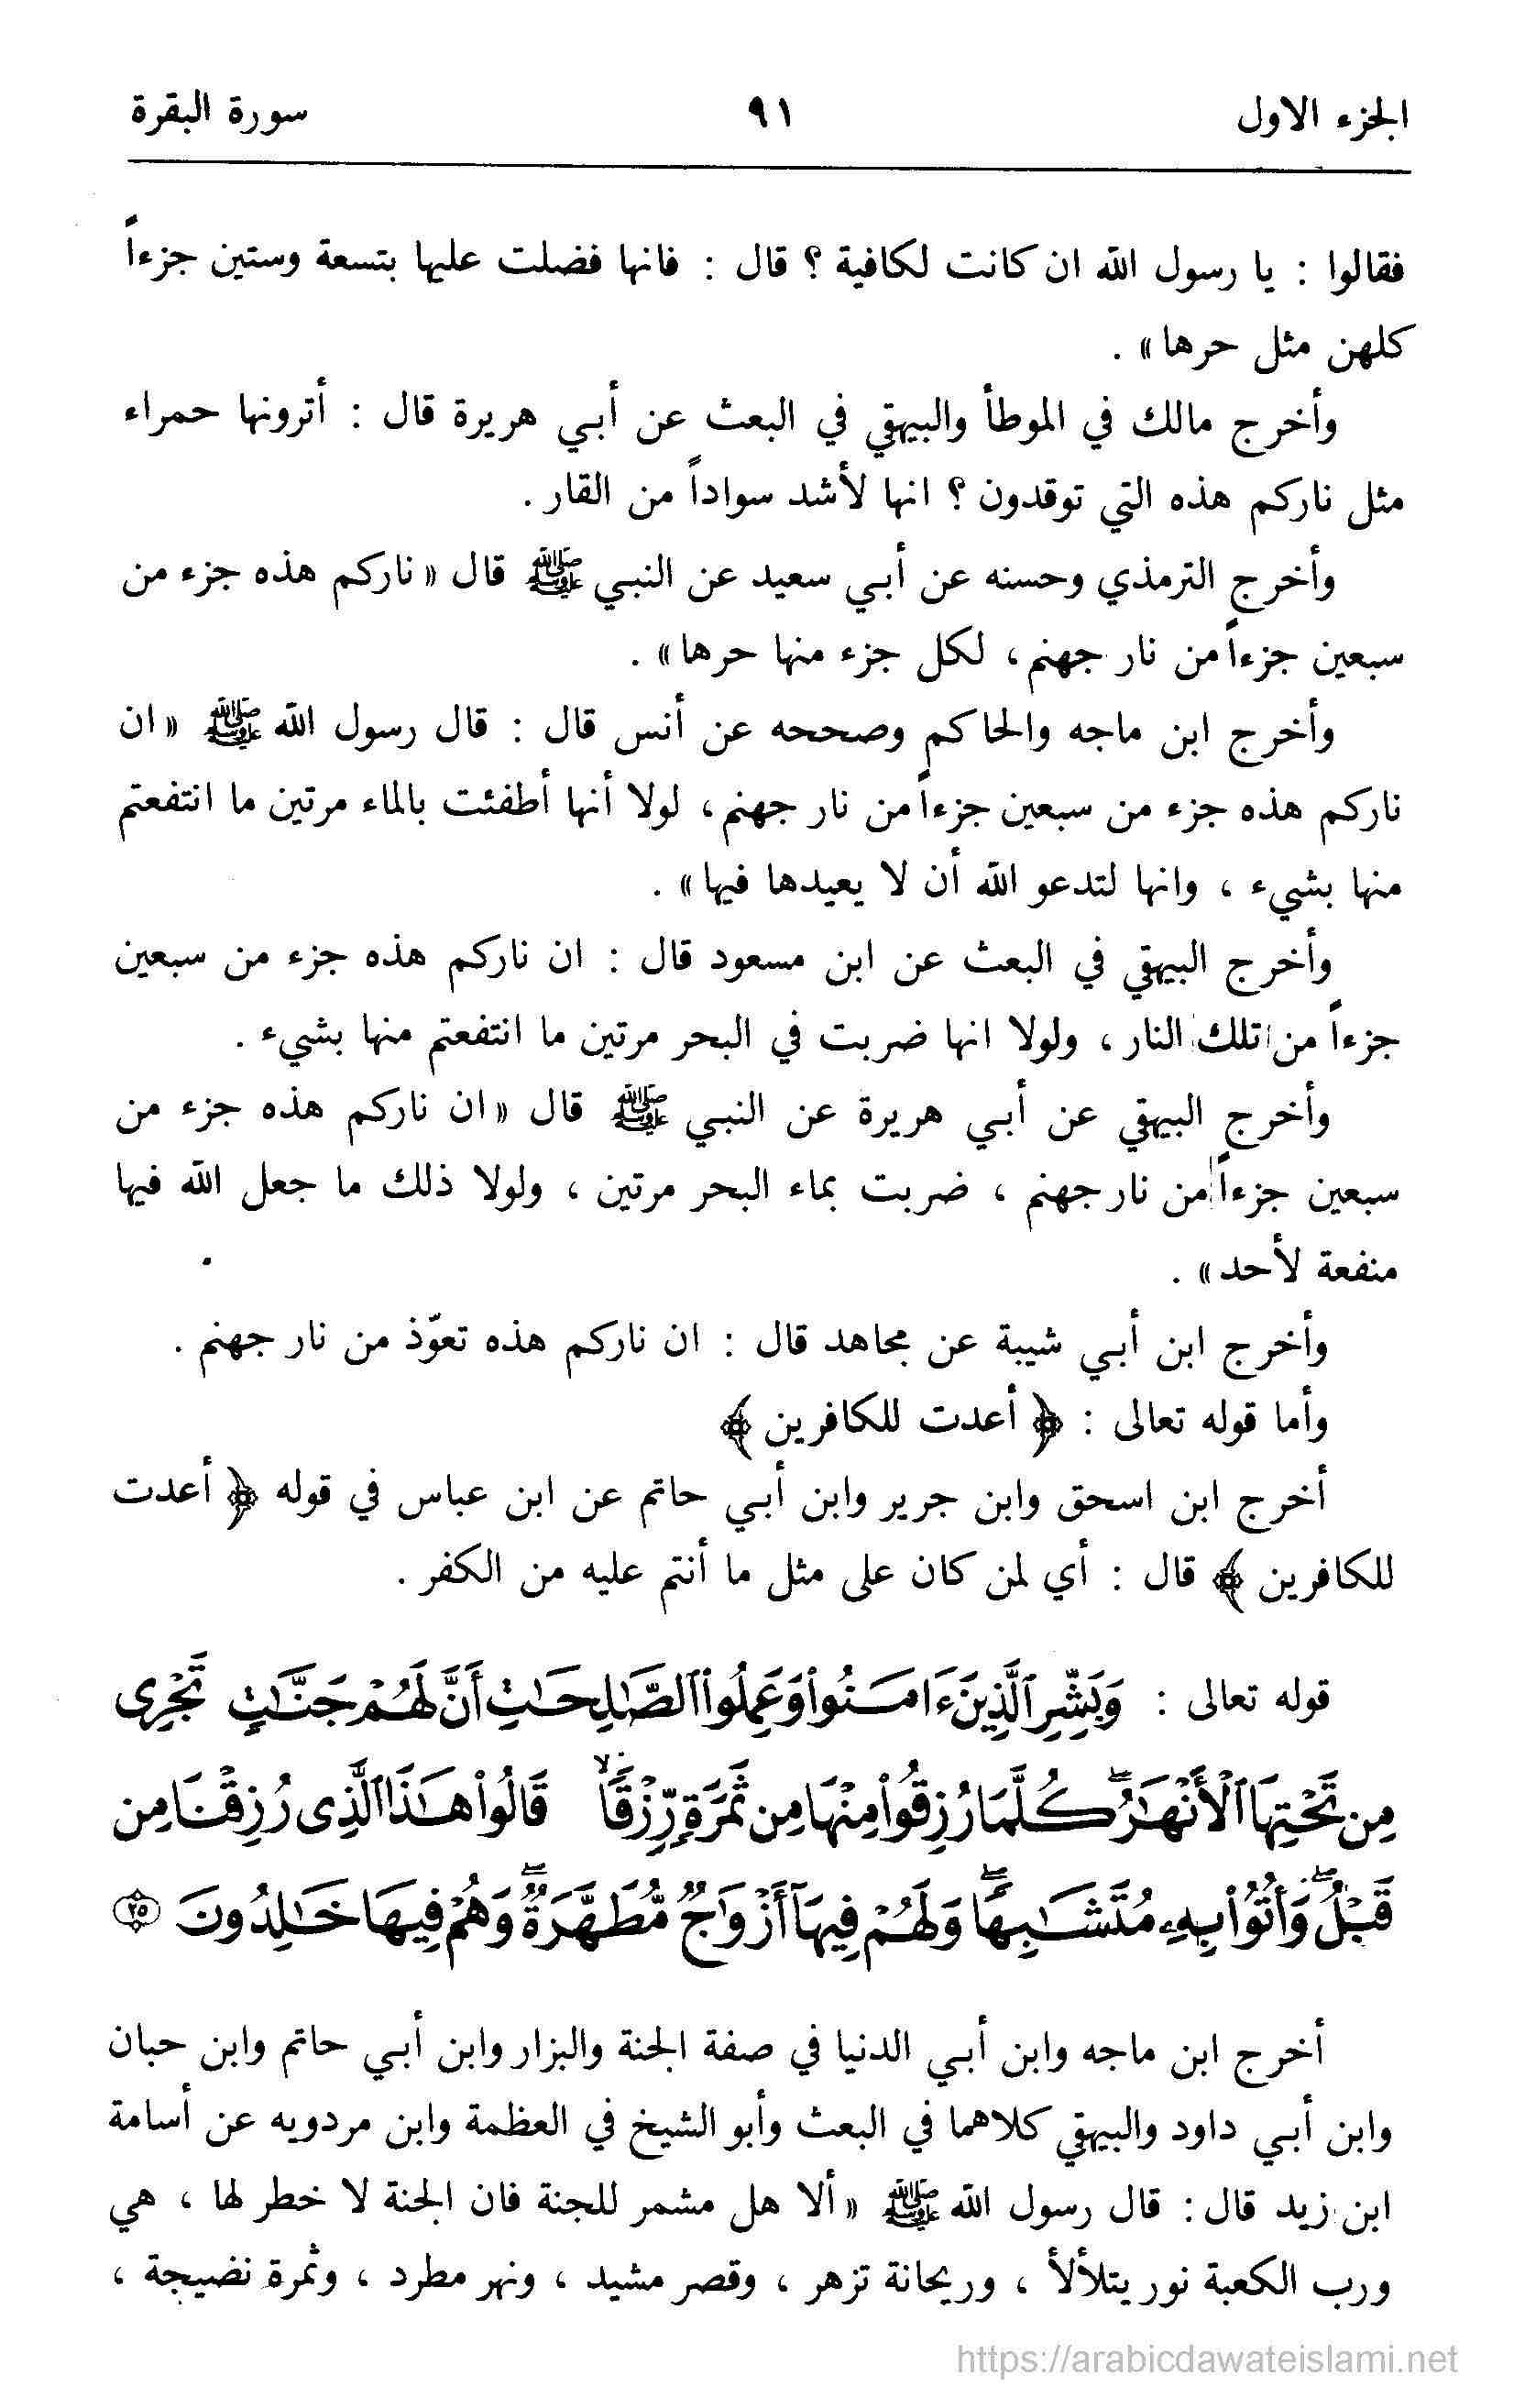 الجزء الاول ٩١ سورة البقرة
فقالوا : يا رسول الله ان كانت لكافية ؟ قال : فانها فضلت عليها بتسعة وستين جزءاً
كلهن مثل حرها» .
وأخرج مالك في الموطأ والبيهقي في البعث عن أبي هريرة قال : أترونها حمراء
مثل ناركم هذه التي توقدون ؟ انها لأشد سواداً من القار .
وأخرج الترمذي وحسنه عن أبي سعيد عن النبي ﷺ قال «ناركم هذه جزء من
سبعين جزءاً من نار جهنم، لكل جزء منها حرها» .
وأخرج ابن ماجه والحاكم وصححه عن أنس قال : قال رسول الله ﷺ «ان
ناركم هذه جزء من سبعين جزءاً من نار جهنم، لولا أنها أطفئت بالماء مرتين ما انتفعتم
منها بشيء ، وانها لتدعو الله أن لا يعيدها فيها» .
وأخرج البيهقي في البعث عن ابن مسعود قال : ان ناركم هذه جزء من سبعين
جزءاً من تلك النار ، ولولا انها ضربت في البحر مرتين ما انتفعتم منها بشيء .
وأخرج البيهقي عن أبي هريرة عن النبي ﷺ قال «ان ناركم هذه جزء من
سبعين جزءاً من نار جهنم ، ضربت بماء البحر مرتين ، ولولا ذلك ما جعل الله فيها
منفعة لأحد» .
وأخرج ابن أبي شيبة عن مجاهد قال : ان ناركم هذه تعوّذ من نار جهنم .
وأما قوله تعالى : ﴿ أعدت للكافرين ﴾
أخرج ابن اسحق وابن جرير وابن أبي حاتم عن ابن عباس في قوله ﴿ أعدت
للكافرين ﴾ قال : أي لمن كان على مثل ما أنتم عليه من الكفر .
قوله تعالى : وَبَشِّرِ ٱلَّذِينَ ءَامَنُوا۟ وَعَمِلُوا۟ ٱلصَّـٰلِحَـٰتِ أَنَّ لَهُمْ جَنَّـٰتٍ تَجْرِى
مِن تَحْتِهَا ٱلْأَنْهَـٰرُ ۖ كُلَّمَا رُزِقُوا۟ مِنْهَا مِن ثَمَرَةٍ رِّزْقًا ۙ قَالُوا۟ هَـٰذَا ٱلَّذِى رُزِقْنَا مِن
قَبْلُ ۖ وَأُتُوا۟ بِهِۦ مُتَشَـٰبِهًا ۖ وَلَهُمْ فِيهَآ أَزْوَٰجٌ مُّطَهَّرَةٌ ۖ وَهُمْ فِيهَا خَـٰلِدُونَ ٢٥
أخرج ابن ماجه وابن أبي الدنيا في صفة الجنة والبزار وابن أبي حاتم وابن حبان
وابن أبي داود والبيهقي كلاهما في البعث وأبو الشيخ في العظمة وابن مردويه عن أسامة
ابن زيد قال : قال رسول الله ﷺ «ألا هل مشمر للجنة فان الجنة لا خطر لها ، هي
ورب الكعبة نور يتلألأ ، وريحانة تزهر ، وقصر مشيد ، ونهر مطرد ، وثمرة نضيجة ،
https://arabicdawateislami.net